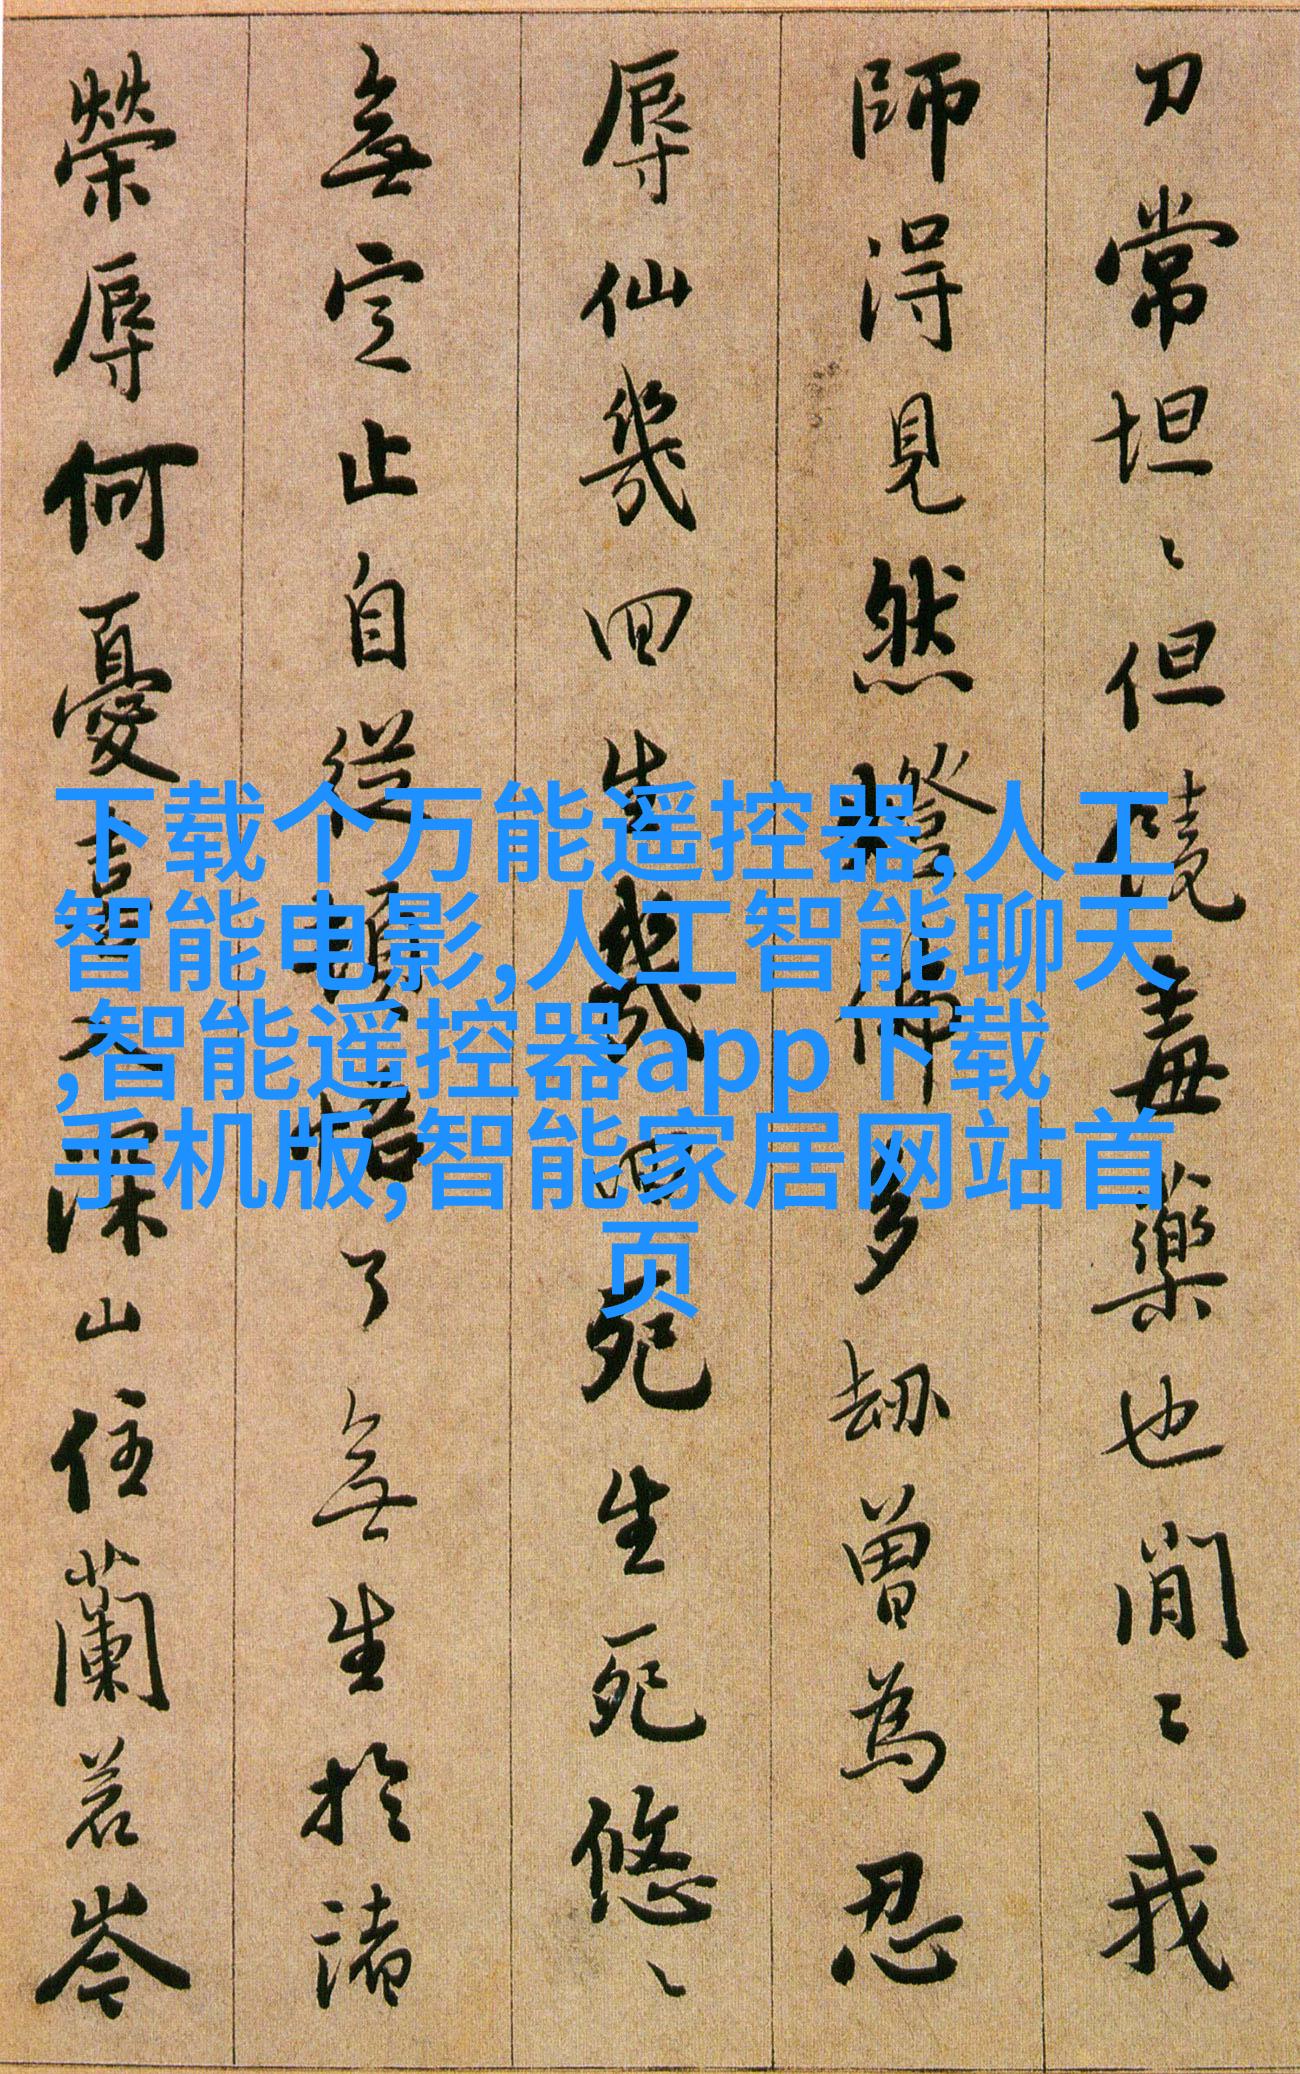 刀常坦〻但饒毒藥也閒〻我
師得見然燈佛多劫曾為忍
辱仙幾回生幾回死生死悠〻
無定止自從頓悟了無生於諸
榮辱何憂喜入深山住蘭若岑
下载个万能遥控器,人工
智能电影,人工智能聊天
,智能遥控器app下载
手机版,智能家居网站首
页